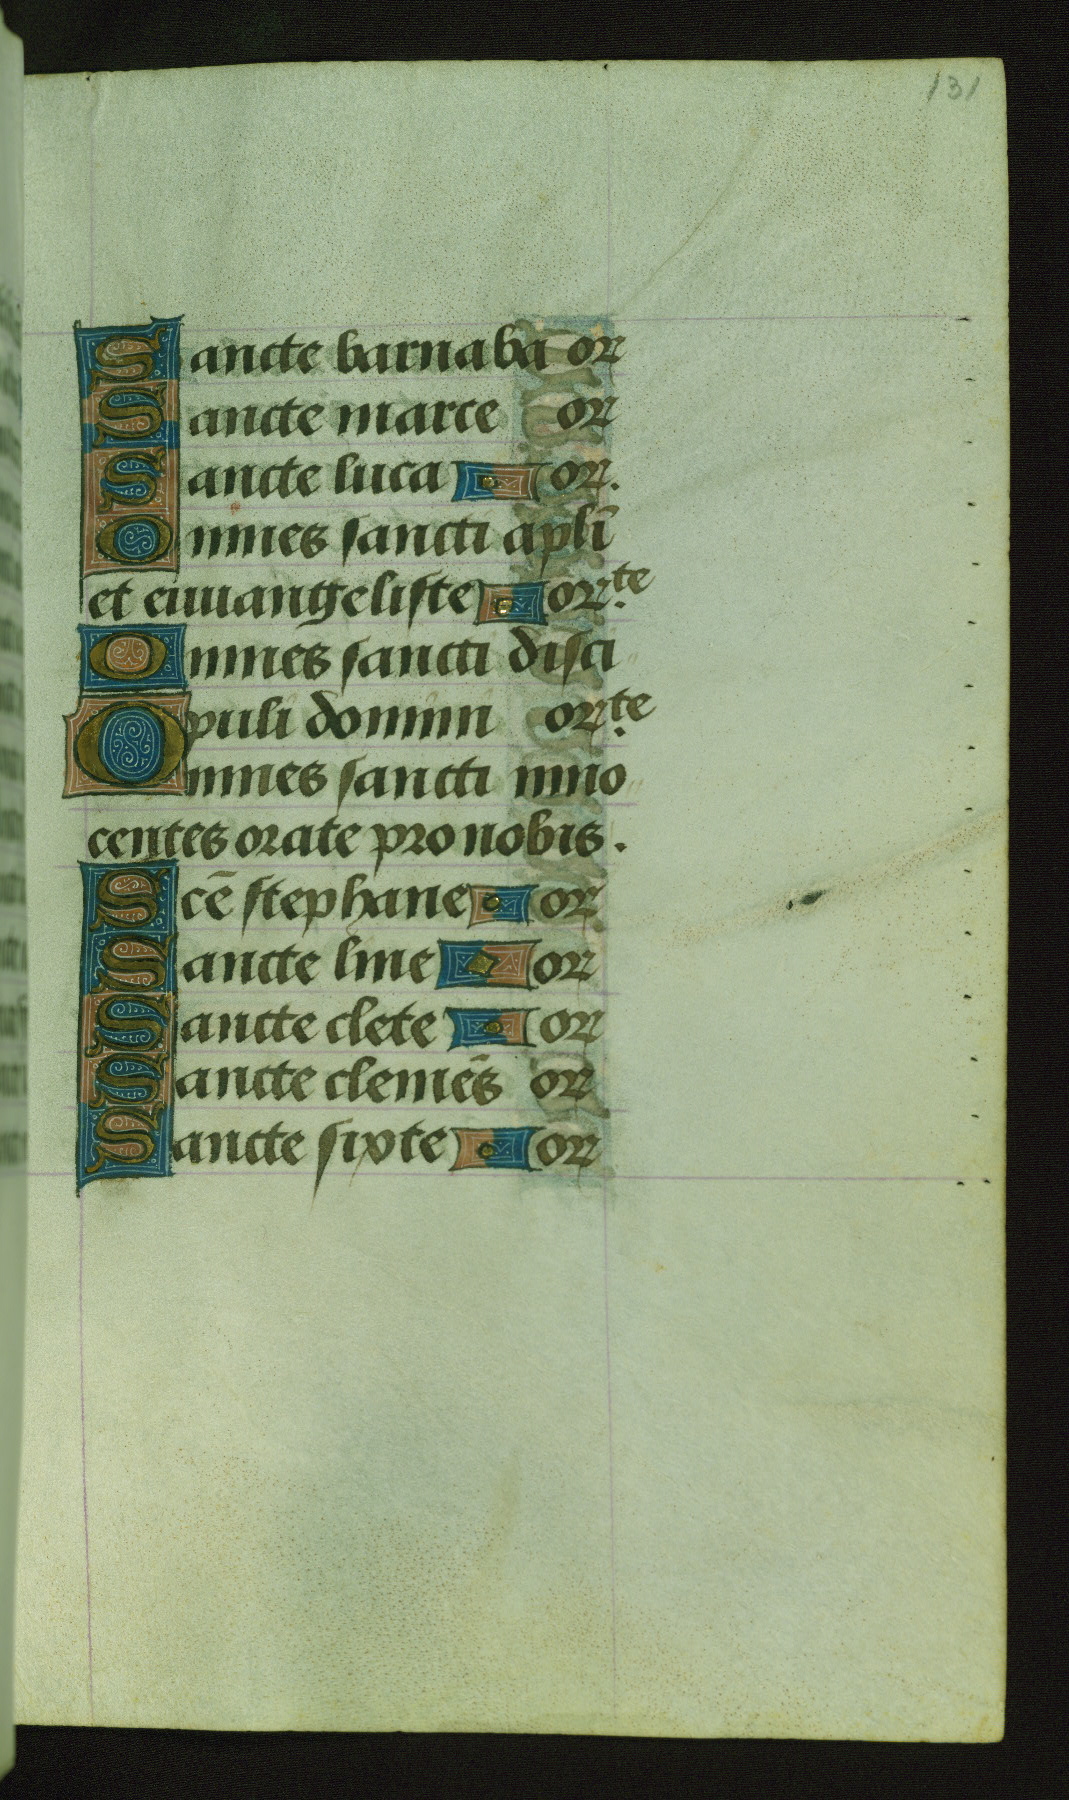 131
Sancte barnaba or
Sancte marce or
Sancte luca or.
Omnes sancti apl̄i
et euuangeliste or.te
Omnes sancti disci
puli domini or.te
Omnes sancti inno
centes orate pro nobis.
Scē stephane or
Sancte line or
Sancte clete or
Sancte clemēs or
Sancte sixte or